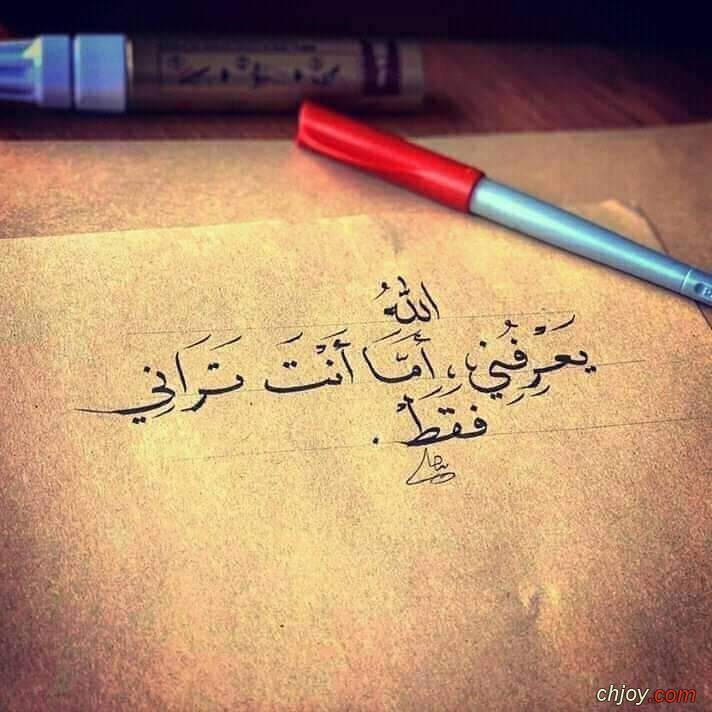 اللهُ
يَعْرِفُني، أَمَّا أَنْتَ تَرَانِي
فَقَطْ.
chjoy.com